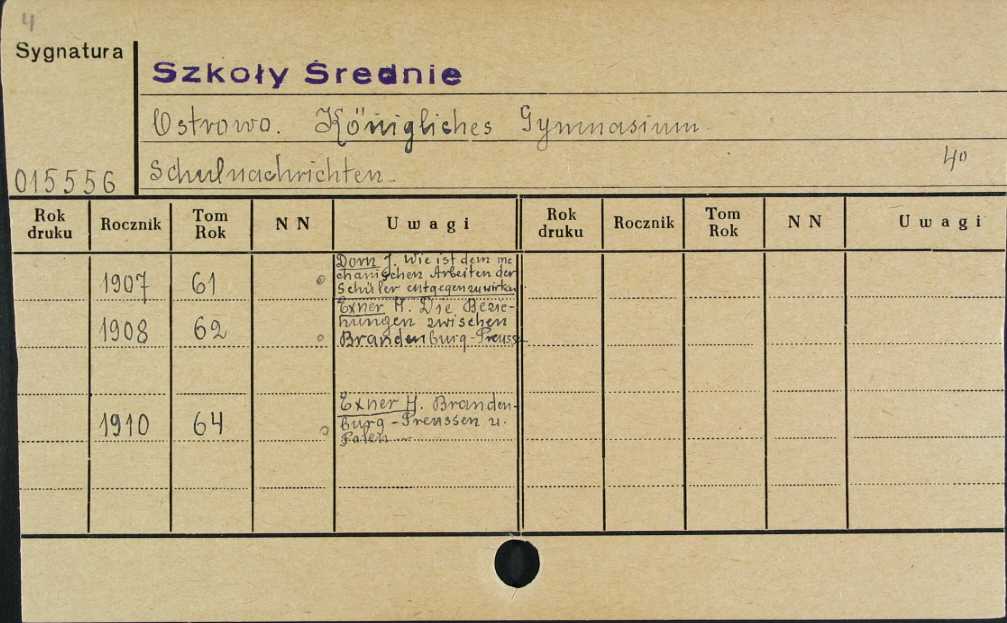 4
Sygnatura
Szkoły Średnie
Ostrowo. Königliches Gymnasium
015556 Schulnachrichten 4°
Rok druku Rocznik Tom Rok N N Uwagi Rok druku Rocznik Tom Rok N N Uwagi
Dorn J. Wie ist dem me
chanischen Arbeiten der
1907 61 Schüler entgegenzuwirken
Exner H. Die Bezie-
hungen zwischen
1908 62 Brandenburg-Preuss
Exner H. Branden-
1910 64 burg-Preussen u.
Polen